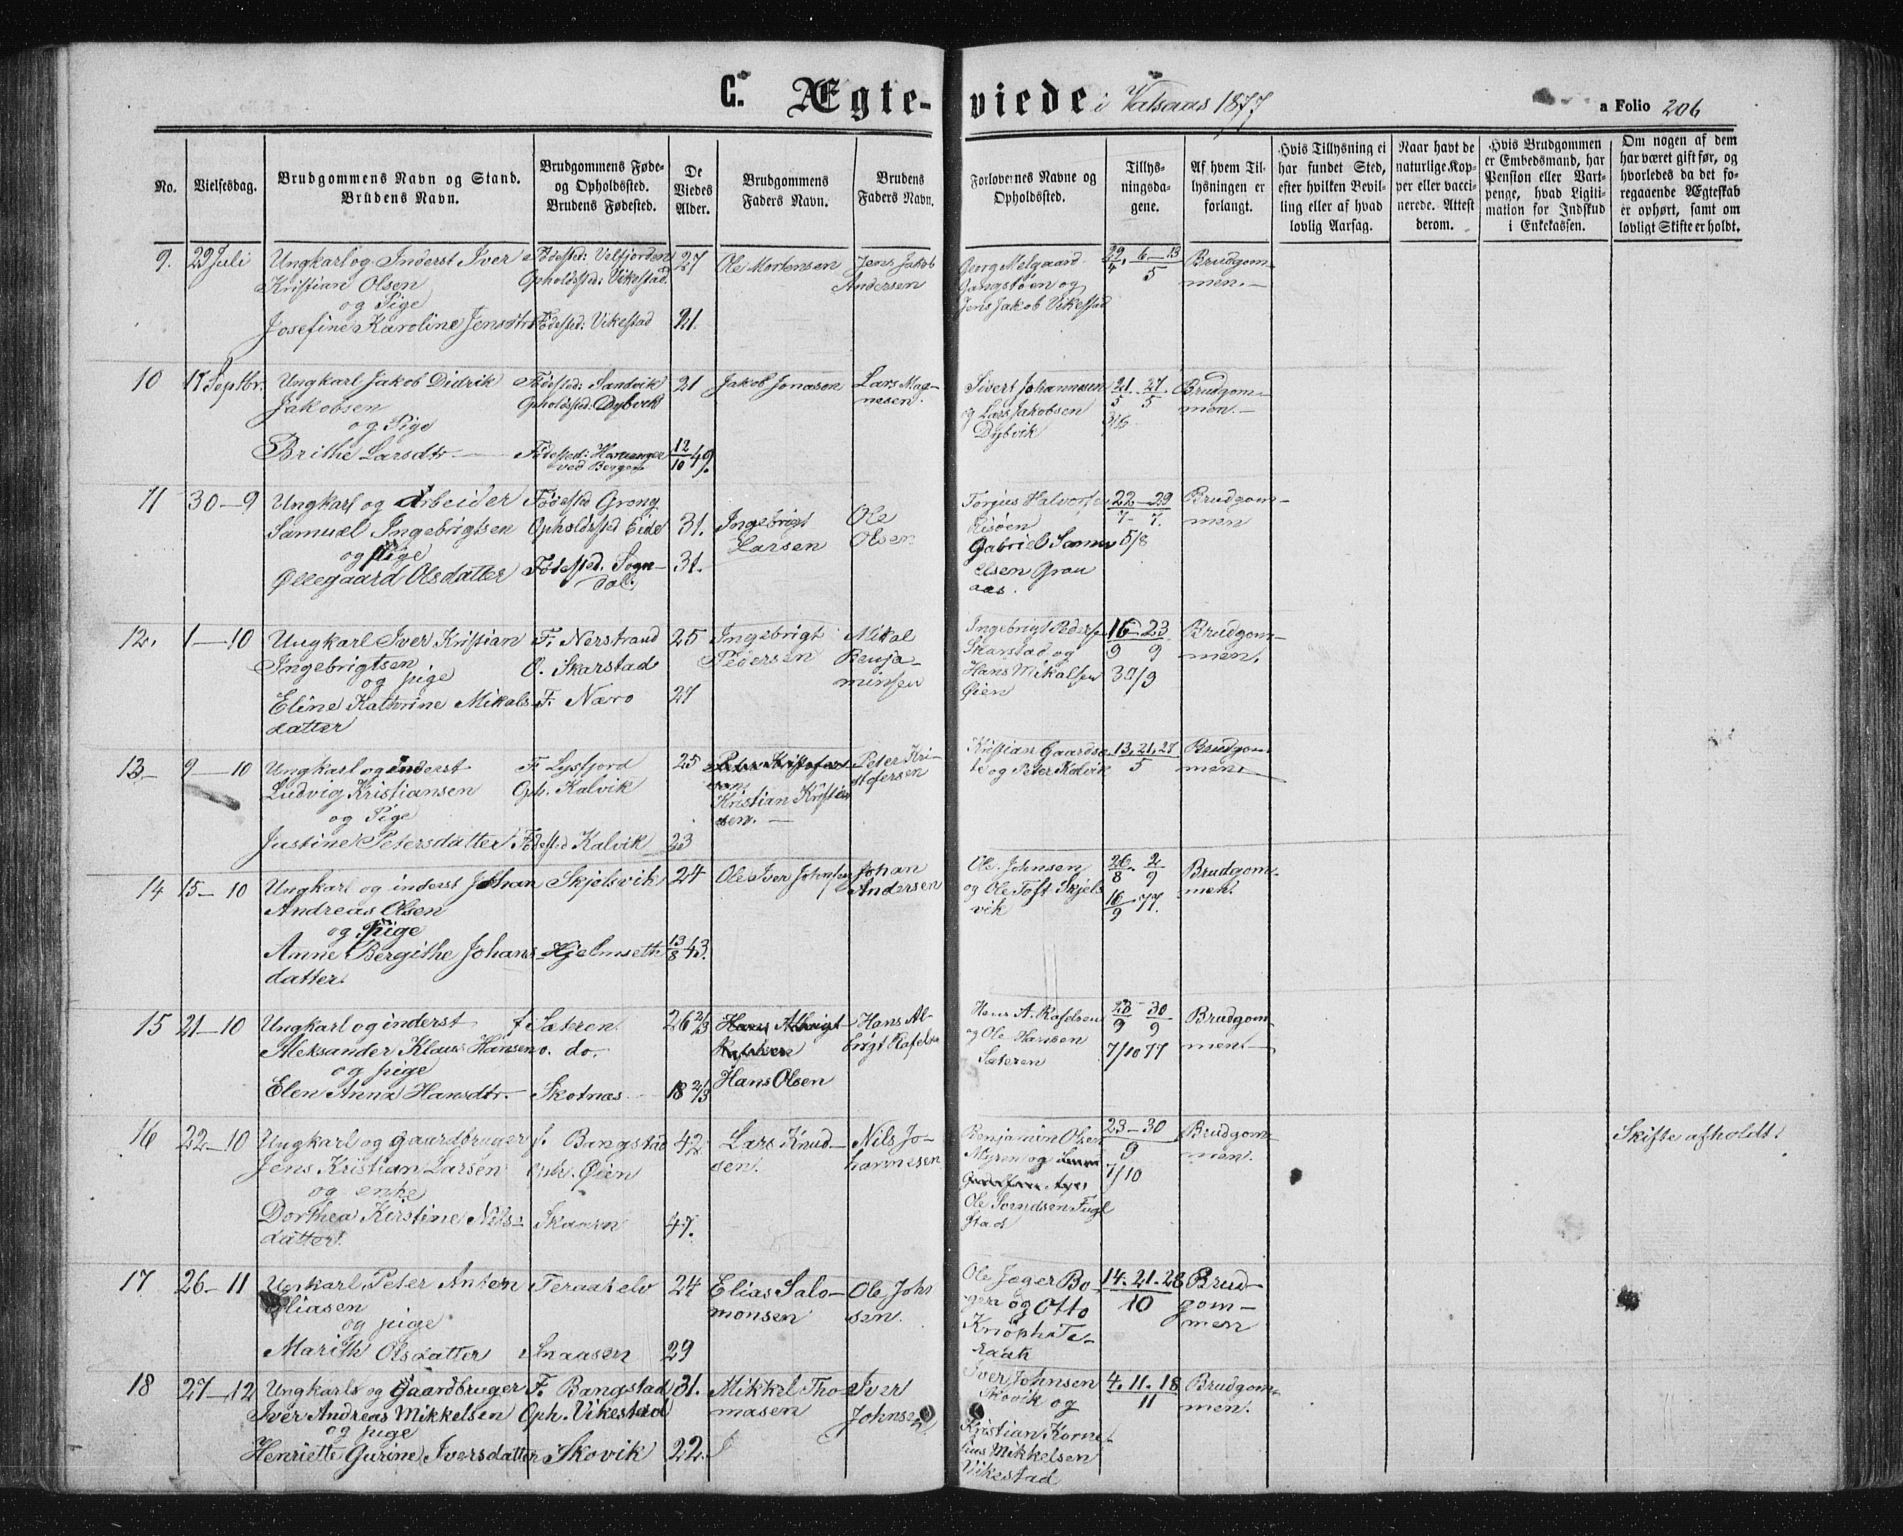 C. Ægte-viede i Valsaas 1877
a Folio 206
No.
Vielsesdag.
Brudgommens Navn og Stand.
Brudens Navn.
Brudgommens Føde-
og Opholdssted.
Brudens Fødested.
De
Viedes
Alder.
Brudgommens
Faders Navn.
Brudens
Faders Navn.
Forlovernes Navne og
Opholdssted.
Tillys-
ningsda-
gene.
Af hvem Til-
lysningen er
forlangt.
Hvis Tillysning ei
har fundet Sted,
efter hvilken Bevil-
ling eller af hvad
lovlig Aarsag.
Naar havt de
naturlige Kop-
per eller vacci-
nerede. Attest
derom.
Hvis Brudgommen
er Embedsmand, har
Pension eller Vart-
penge, hvad Ligiti-
mation for Indskud
i Enkekassen.
Om nogen af dem
har været gift før, og
hvorledes da det fo-
regaaende Ægteskab
er ophørt, samt om
lovligt Skifte er holdt.
9. 29 Juli
Ungkarl og Inderst Iver
Kristian Olsen
og Pige
Josefine Karoline Jensdtr
Fødested: Velfjorden
Opholdssted: Vikestad
Fødested: Vikestad
27
21.
Ole Mortensen
Jens Jakob
Andersen
Georg Melgaard
Gangstøen og
Jens Jakob Vikestad
29/4. 6–13/5
Brudgom-
men.–
10 17 Septbr.
Ungkarl Jakob Didrik
Jakobsen
og Pige
Brithe Larsdtr
Fødested: Sandvik
Opholdssted: Dybvik
Fødested: Harranger
ved Bergen
21
12/10 49.
Jakob Jonason
Lars Mag-
nesen.
Sivert Johannesen
og Lars Jakobsen
Dybvik
21/5. 27/5
3/6.
Brudgom-
men.–
11 30–9
Ungkarl og Arbeider
Samuel Ingebrigtsen
og pige
Øllegaard Olsdatter
Fødested Grong
Opholdssted Eide
Fødested. Sogn-
dal.
31.
31.
Ingebrigt
Larsen
Ole
Olsen
Torjus Halvorsen
Risøen
Gabriel Samu
elsen Grau
aas.
22/7–29/7.
5/8
Brudgom-
men
12. 1–10
Ungkarl Iver Kristian
Ingebrigtsen
og pige
Eline Kathrine Mikals
datter
F. Nerstrand
O. Skarstad
F. Næro
25
27
Ingebrigt
Pedersen
Mikal
Benja-
minsen
Ingebrigt Peders
Skarstad og
Hans Mikalsen
Øien
16/9–23/9
30/9
Brudgom-
men.
13– 9–10
Ungkarl og inderst
Ludvig Kristiansen
og Pige
Justine Petersdatter
F. Lysfjord
Oph. Kalvik
Fødested Kalvik
25
23
Peter Kristofer
sen
Kristian Kristian
sen.–
Peter Kri-
stofersen
Kristian Gaardsø
te og Peter Kalvik
13, 21, 27
5
Brudgom-
men.–
14 15–10
Ungkarl og inderst Johan
Andreas Olsen
og pige
Anne Bergithe Johans
datter.
Skjelsvik
Hjelmseth
24
13/8 43.
Ole Iver Johnsen
Johan
Andersen
Ole Johnsen
og Ole Toft Skjels
vik
26/8. 2/9
16/9 77.
Brudgom-
men.
15 21–10
Ungkarl og inderst
Aleksander Klaus Hansen
og pige
Elen Anna Hansdtr.
f. Sæteren
o. do.
Skotnæs
26 2/3
18 2/3
Hans Albrigt
Hans Olsen
Hans Al-
brigt Rafelsen
Hans A. Rafelsen
og Ole Hansen
Sæteren
23/9–30/9
7/10 77
Brudgom-
men.–
16 22–10
Ungkarl og Gaardbruger
Jens Kristian Larsen
og enke
Dorthea Kirstine Nils-
datter.
f. Bangstad
oph. Øien
Skaaren
42
47.
Lars Knud-
sen.
Nils Jo-
hannesen
Benjamin Olsen
Myren og
Ole Svendsen Fugl
stad
23–30
9
7/10
Brudgom-
men.
Skifte afholdt.
17 26–11
Ungkarl Peter Anton
Eliasen
og pige
Marith Olsdatter
Teraatelv
Snaasen
24
29
Elias Salo-
monsen
Ole John
sen.
Ole Jæger Bo-
gen og Otto
Knoph Te-
raak
14. 21. 28
10
Brud-
gom-
men
18 27–12
Ungkarl og Gaardbruger
Iver Andreas Mikkelsen
og pige
Henriette Gurine Iversdatter
F. Bangstad
Oph. Vikestad
Skovik
31.
22.
Mikkel Tho-
masen
Iver
Johnsen
Iver Johnsen
Skovik og
Kristian Korne-
lius Mikkelsen
Vikestad
4. 11. 18
11
Brudgom-
men.